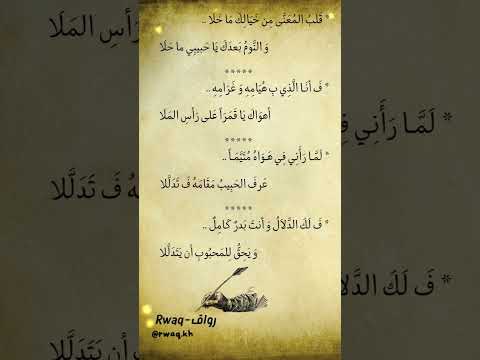 * قَلبُ المُعَنَّى مِن خَيَالِكَ مَا خَلَا ..
وَ النَّومُ بَعدَكَ يَا حَبيبِي ما حَلَا
*****
* فَ أنَا الَّذِي بِ هُيَامِهِ وَ غَرَامِهِ ..
أهوَاكَ يَا قَمَرَاً عَلى رَأسِ المَلَا
*****
* لَمَّا رَأَنِي فِي هَوَاهُ مُتَيَّمَاً ..
عَرفَ الحَبِيبُ مَقَامَهُ فَ تَدَلَّلا
*****
* فَ لَكَ الدَّلاَلُ وَ أنتَ بَدرٌ كَامِلٌ ..
وَ يَحقُّ للمَحبُوبِ أن يَتَدَلَّلا
رواق-Rwaq
@rwaq.kh
رَأسِ المَلَا
* لَمَّا رَأَنِي فِي
هُ فَ تَدَلَّلا
* فَ لَكَ الدَّلاَ
أن يَتَدَلَّلا